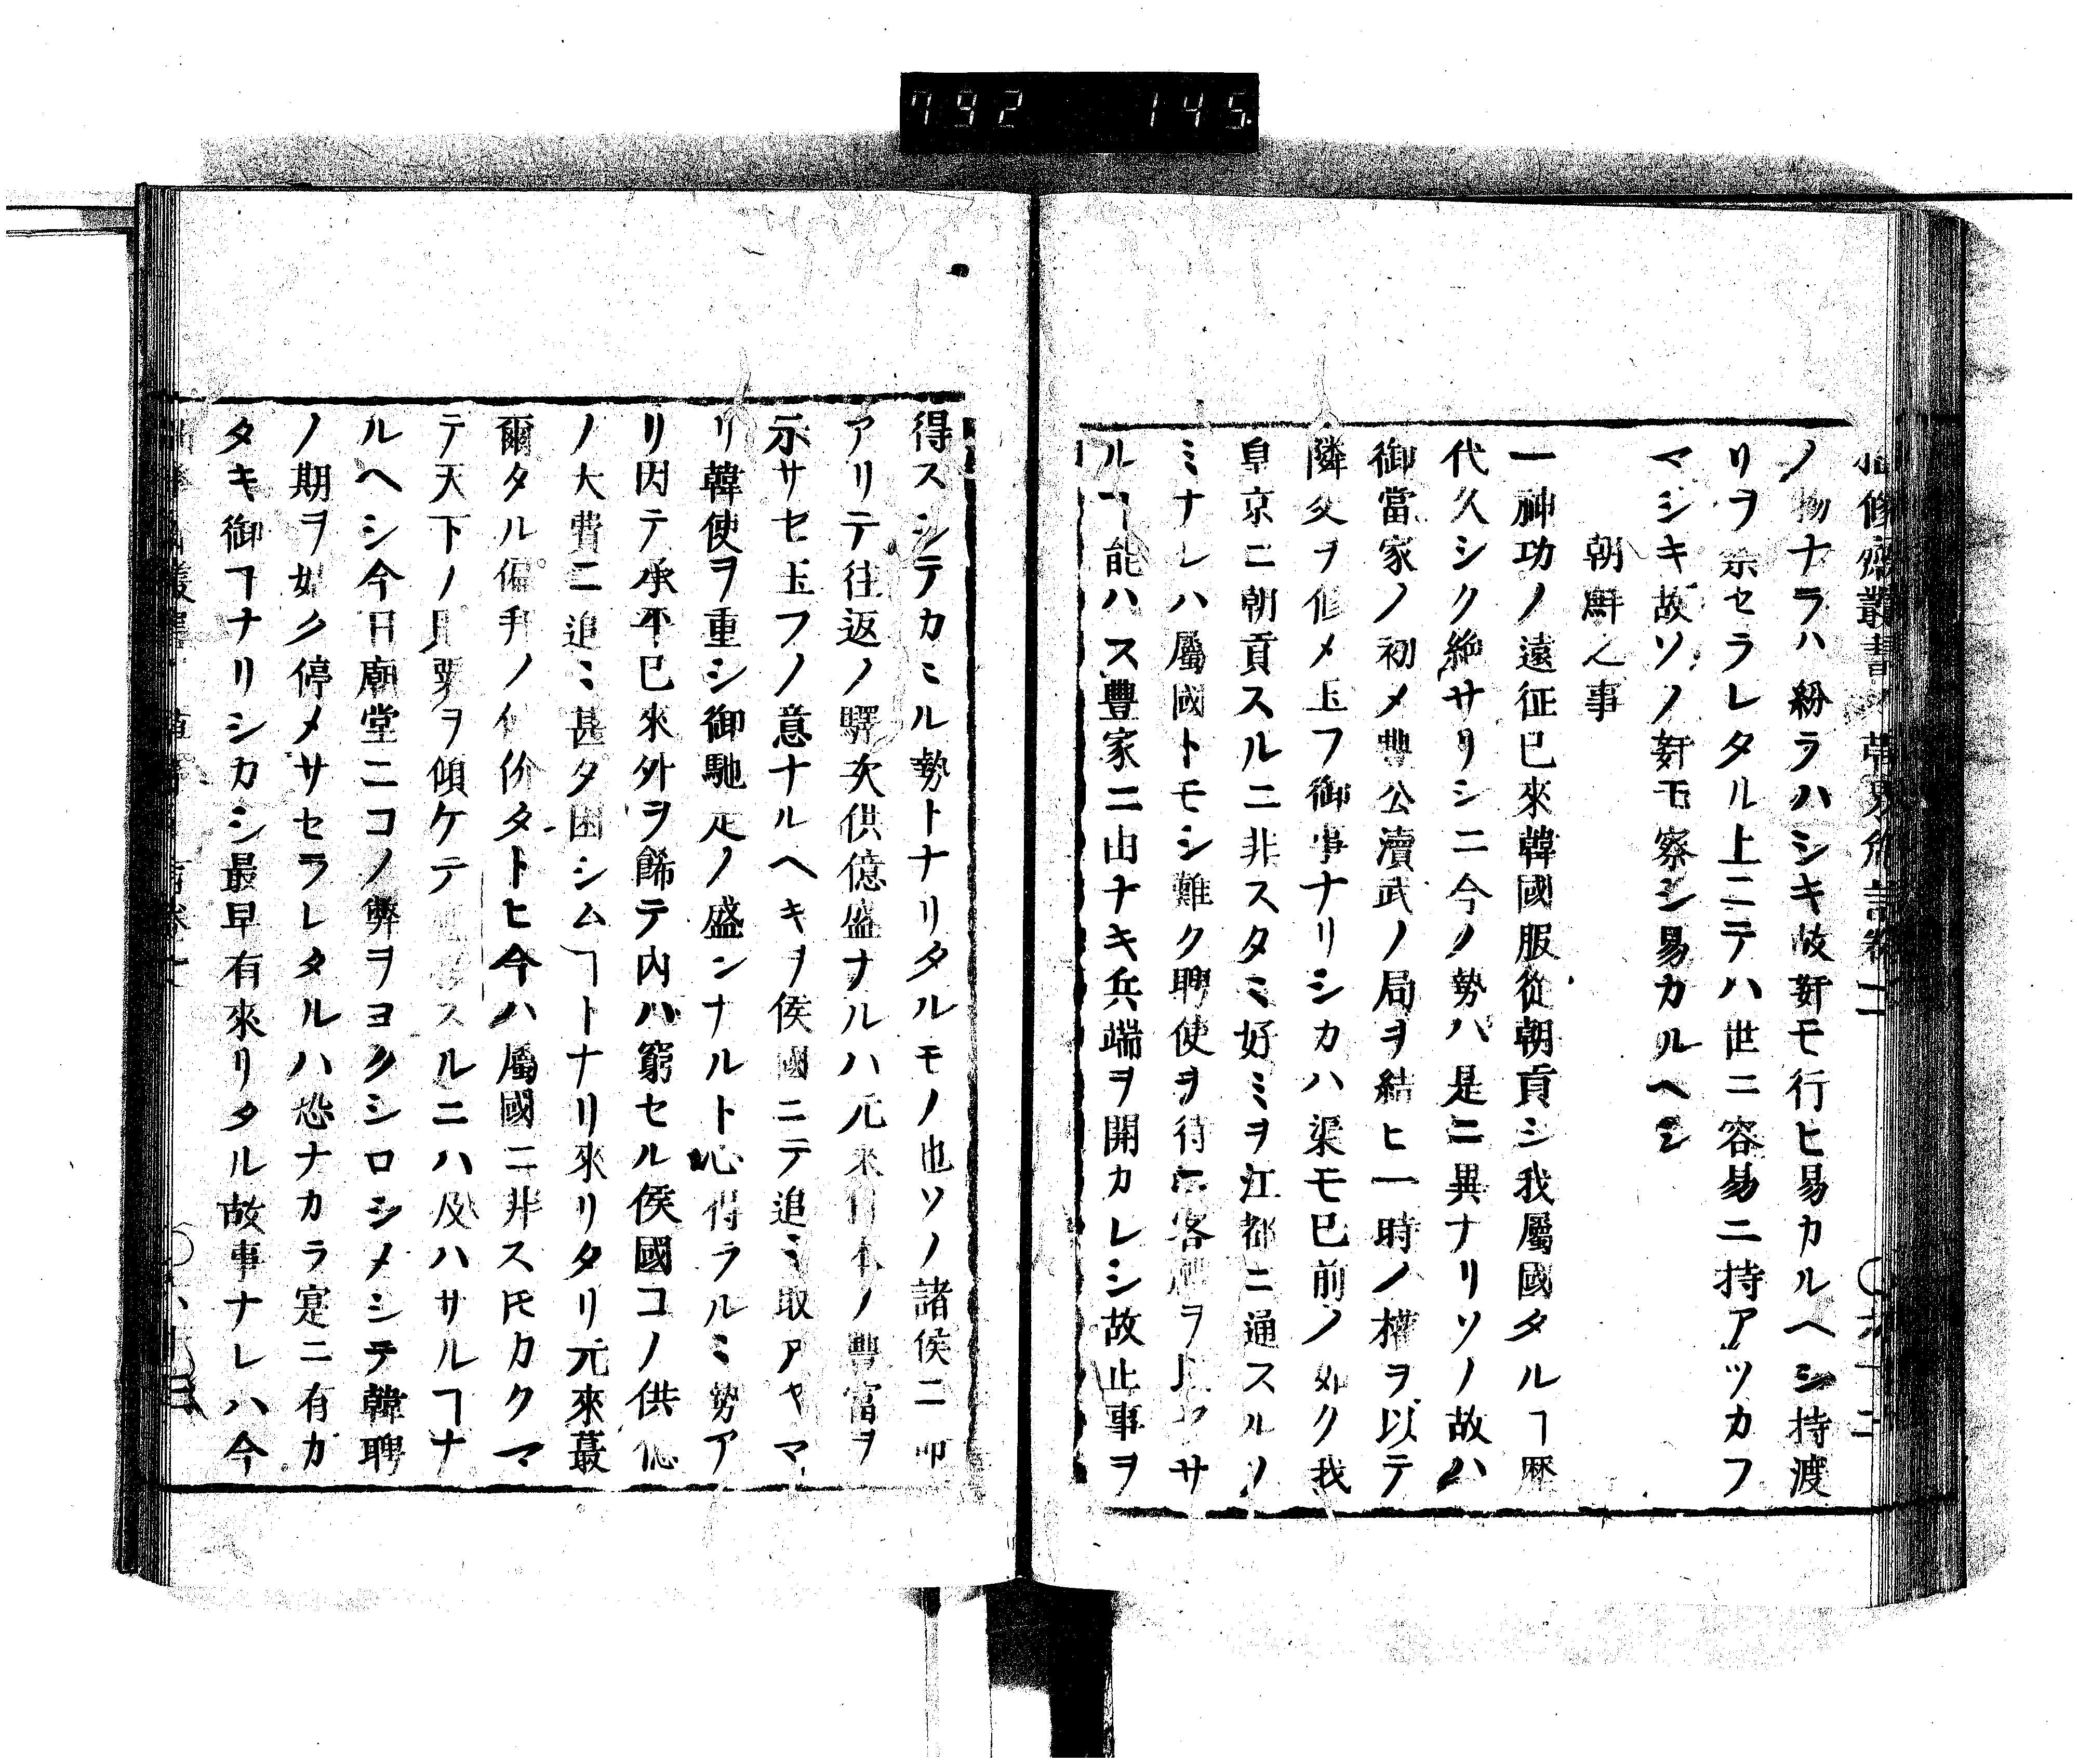 792 145
ノ物ナラハ紛ラハシキ故姧モ行ヒ易カルヘシ持渡
リヲ禁セラレタル上ニテハ世ニ容易ニ持アツカフ
マジキ故ソノ姧モ察シ易カルヘシ
朝鮮之事
一神功ノ遠征已來韓國服從朝貢シ我屬國タルヿ歴
代久シク絶サリシニ今ノ勢ハ是ニ異ナリソノ故ハ
御當家ノ初メ豐公瀆武ノ局ヲ結ヒ一時ノ權ヲ以テ
隣交ヲ修メ玉フ御事ナリシカハ渠モ已前ノ如ク我
皐京ニ朝貢スルニ非スタミ好ミヲ江都ニ通スルノ
ミナレハ屬國トモシ難ク聘使ヲ待ニ客禮ヲ サ
ルヿ能ハス豐家ニ由ナキ兵端ヲ開カレシ故止事ヲ
得スシテカミル勢トナリタルモノ也ソノ諸侯ニ命
アリテ往返ノ驛次供億盛ナルハ元來日本ノ豐富ヲ
示サセ玉フノ意ナルヘキヲ侯國ニテ追ミ取アヤマ
リ韓使ヲ重シ御馳走ノ盛ンナルト心得ラルミ勢ア
リ因テ承平已來外ヲ餙テ内ハ窮セル侯國コノ供億
ノ大費ニ追ミ甚タ困シムヿトナリ來リタリ元來蕞
爾タル偏邦ノ使价タトヒ今ハ屬國ニ非ス圧カクマ
テ天下ノ 聚ヲ傾ケテ スルニハ及ハサルヿナ
ルヘシ今日廟堂ニコノ弊ヲヨクシロシメシテ韓聘
ノ期ヲ如ク停メサセラレタルハ恐ナカラ寔ニ有カ
タキ御ヿナリシカシ最早有來リタル故事ナレハ今